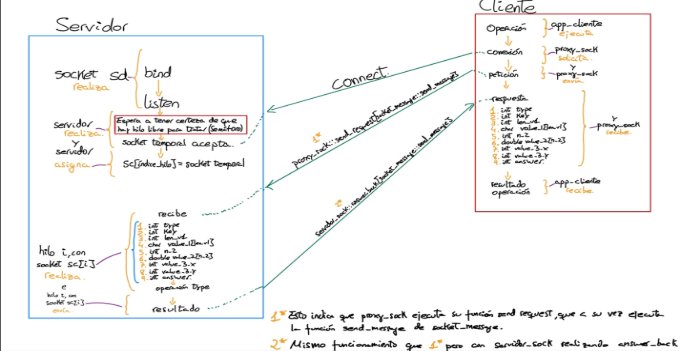 Servidor
socket sd
realiza
bind
listen
Espera a tener certeza de que
hay hilo libre para tratar (semáforo)
servidor
realiza
y
servidor
asigna
socket temporal acepta
sc[índice_hilo] = socket temporal
recibe
1 int type
2 int key
3 int len_v1
4 char value_1[len_v1]
5 int n_2
6 double value_2[n_2]
7 int value_3.x
8 int value_3.y
9 int answer
operación type
resultado
hilo i, con
socket sc[i]
realiza
e
hilo i, con
socket sc[i]
envía
connect
1*
proxy_sock::send_request[socket_message::send_message]
2*
servidor_sock::answer_back[socket_message::send_message]
Cliente
operación
app_cliente
ejecuta
conexión
proxy_sock
solicita
y
petición
proxy_sock
envía
respuesta
1 int type
2 int key
3 int len_v1
4 char value_1[len_v1]
5 int n_2
6 double value_2[n_2]
7 int value_3.x
8 int value_3.y
9 int answer
y
proxy_sock
recibe
resultado
operación
app_cliente
recibe
1* Esto indica que proxy_sock ejecuta su función send request, que a su vez ejecuta
la función send_message de socket_message.
2* Mismo funcionamiento que 1* pero con servidor_sock realizando answer_back